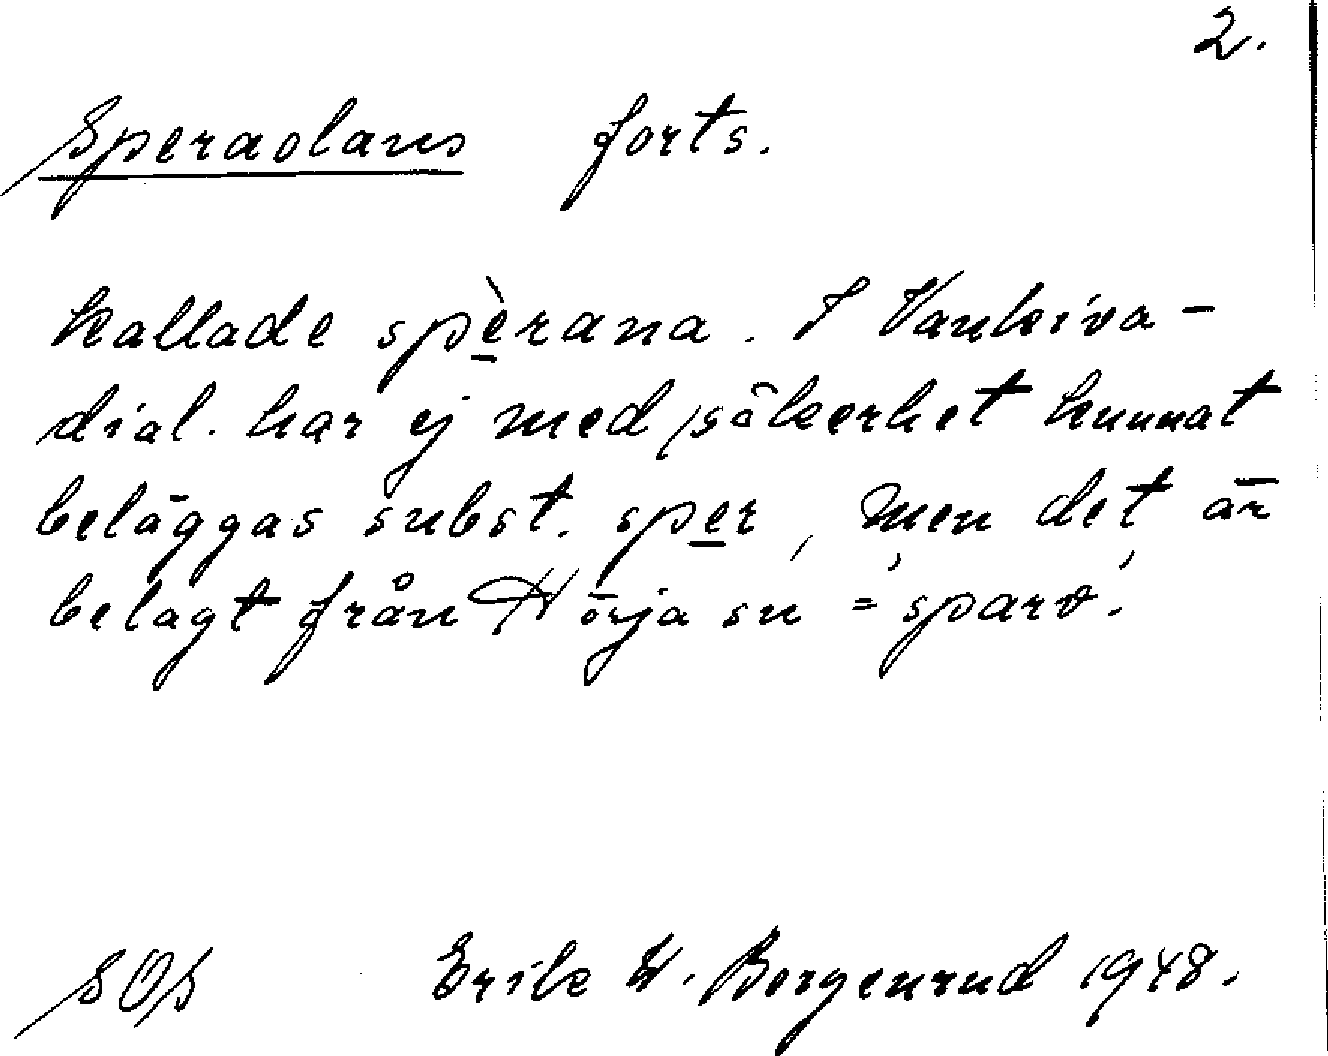 2.
Speraolans forts.
kallade spèrana. I Vankiva-
dial. har ej med säkerhet kunnat
beläggas subst. sper, men det är
belagt från Hörja sn = 'sparv'.
SOS Erik W. Borgenrud 1948.